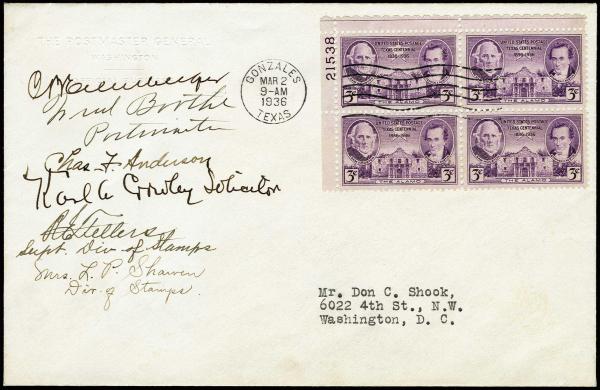 THE POSTMASTER GENERAL
WASHINGTON
Postmaster
Chas. F. Anderson
Karl A Crowley Solicitor
R E Fellers
Supt. Div. of Stamps
Mrs. L. P. Shawen
Div. of Stamps.
GONZALES
MAR 2
9-AM
1936
TEXAS
21538
UNITED STATES POSTAGE
TEXAS CENTENNIAL
1836-1936
3¢
THE ALAMO
3¢
UNITED STATES POSTAGE
TEXAS CENTENNIAL
1836-1936
3¢
THE ALAMO
3¢
UNITED STATES POSTAGE
TEXAS CENTENNIAL
1836-1936
3¢
THE ALAMO
3¢
UNITED STATES POSTAGE
TEXAS CENTENNIAL
1836-1936
3¢
THE ALAMO
3¢
Mr. Don C. Shook,
6022 4th St., N.W.
Washington, D. C.